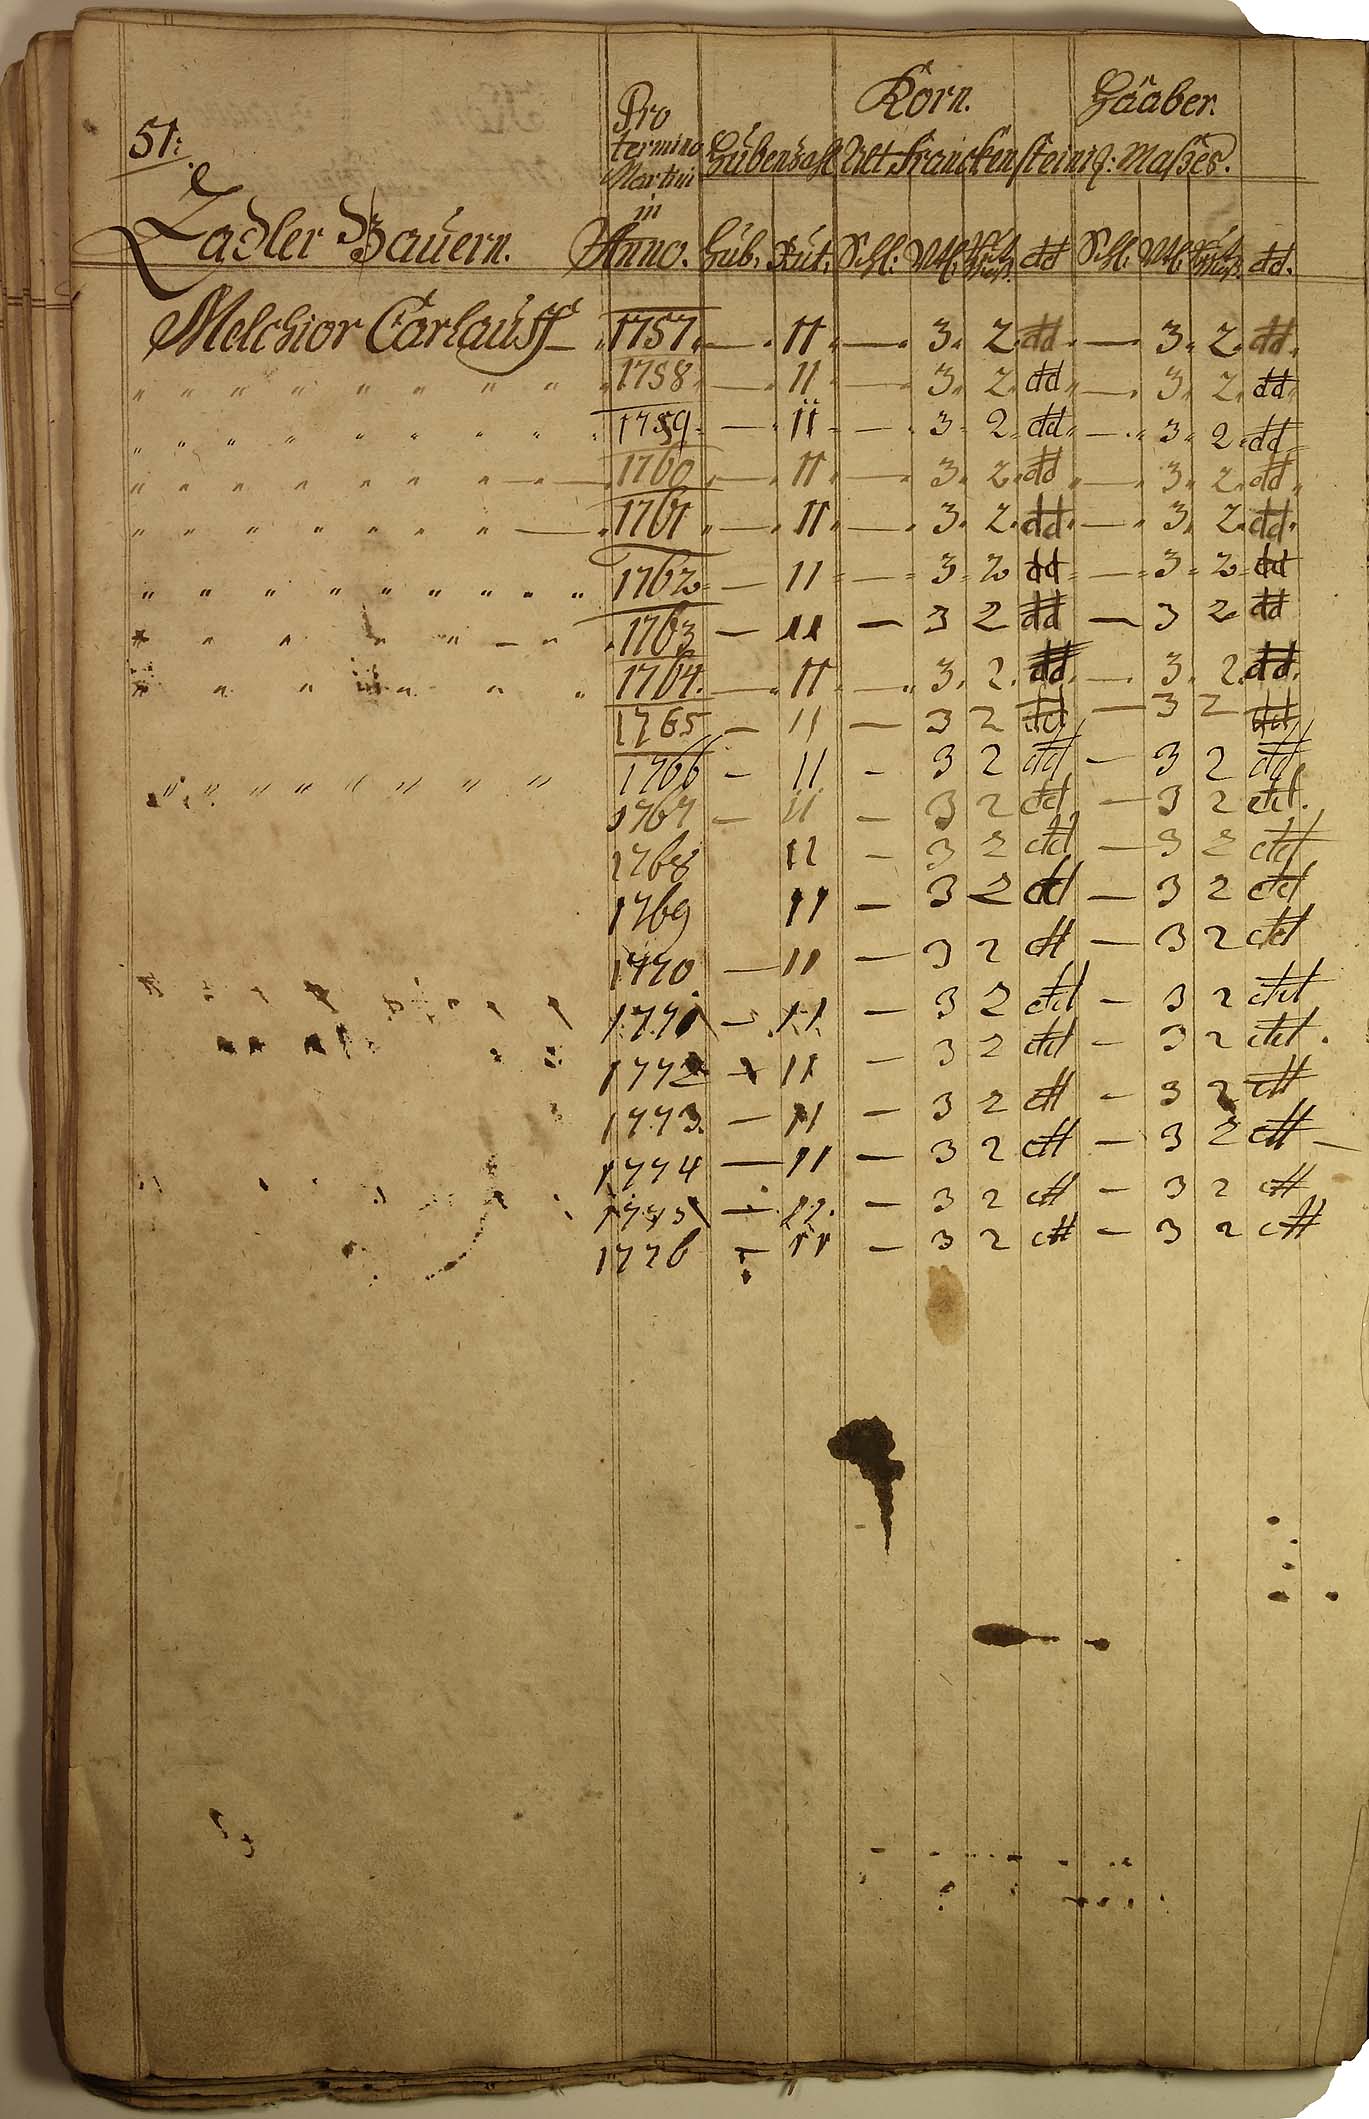 51:
Korn. Haaber.
Pro
termino
Martini
in
Anno.
Hubenzahl Alt Franckensteinis: Masses.
Zadler Bauern.
Hub: Rut: Schl: Vtl: dd Schl: Vtl: dd.
Melchior Carlauss — 1757. — 11 — 3. 2. dd. — 3. 2. dd.
" " " " " " " " 1758. — 11 — 3. 2. dd. — 3. 2. dd.
" " " " " " " " 1759. — 11 — 3. 2. dd. — 3. 2. dd.
" " " " " " " — " — 1760 — 11 — 3. 2. dd — 3. 2. dd.
" " " " " " " — 1761 — 11 — 3. 2. dd. — 3. 2. dd.
" " " " " " " " " " 1762 — 11 — 3 2 dd — 3 2 dd
" " " " " — " 1763 — 11 — 3 2 dd — 3 2 dd
" " " " " " 1764. — 11 — 3. 2. dd. — 3. 2. dd.
1765 — 11 — 3 2 dd — 3 2 dd
" " " " " " " " " 1766 — 11 — 3 2 dd — 3 2 dd
1767 — 11 — 3 2 dd — 3 2 dd.
1768 11 — 3 2 dd — 3 2 dd
1769 11 — 3 2 dd — 3 2 dd
1770 — 11 — 3 2 dd — 3 2 dd
1771 — 11 — 3 2 dd — 3 2 dd
1772 — 11 — 3 2 dd — 3 2 dd.
1773. — 11 — 3 2 dd — 3 2 dd
1774 — 11 — 3 2 dd — 3 2 dd —
1775 — 11. — 3 2 dd — 3 2 dd
1776 — 11 — 3 2 dd — 3 2 dd